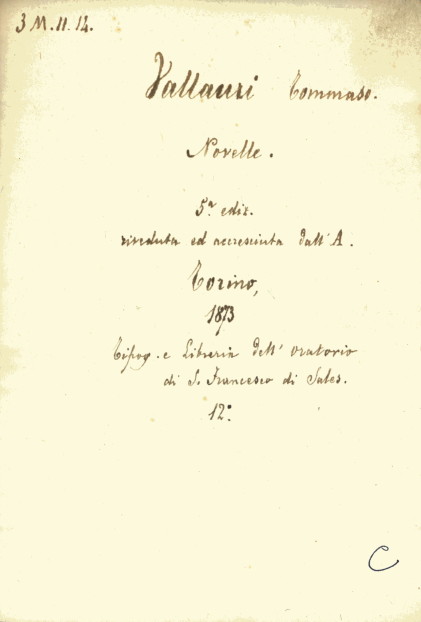 3 M. 11. 14.
Vallauri Tommaso.
Novelle.
5ª ediz.
riveduta ed accresciuta dall'A.
Torino,
1873
Tipog. e Libreria dell' Oratorio
di S. Francesco di Sales.
12°
C